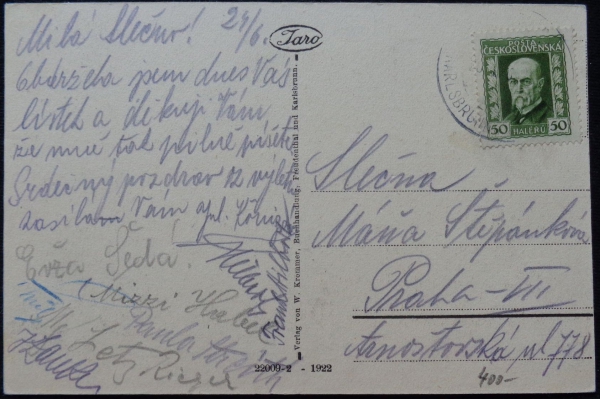 Milá Slečno! 24/6.
Obdržela jsem dnes Váš
lístek a děkuji Vám
že mně tak pilně píšete
Srdečný pozdrav z výletu
zasílám Vám
Evža Šedá.
Mizzi
Rieger
Taro
Verlag von W. Krommer, Buchhandlung, Freudenthal und Karlsbrunn.
22009-2 - 1922
POSTA
ČESKOSLOVENSKÁ
50 HALÉŘŮ 50
Slečna
Máňa Štěpánková
Praha-VII
Arnoštovská ul 778
400-